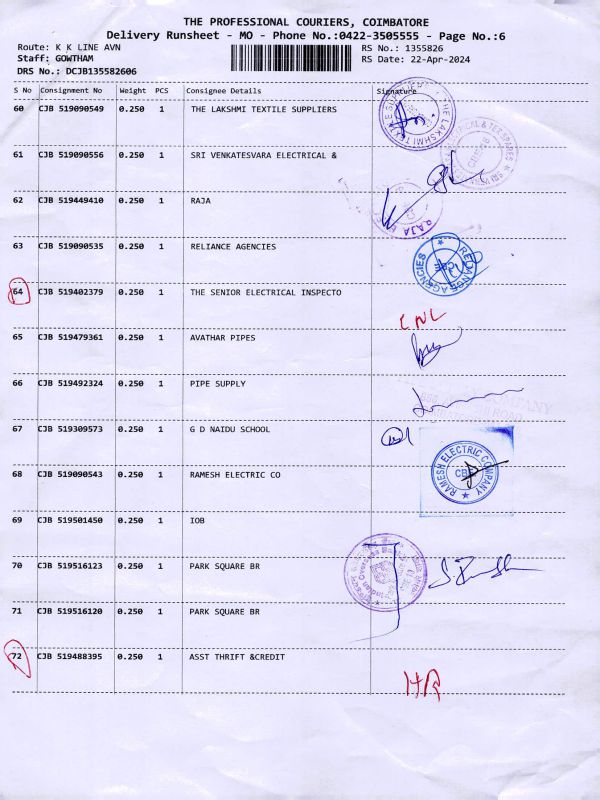 THE PROFESSIONAL COURIERS, COIMBATORE
Delivery Runsheet - MO - Phone No.:0422-3505555 - Page No.:6
Route: K K LINE AVN
RS No.: 1355826
Staff: GOWTHAM
RS Date: 22-Apr-2024
DRS No.: DCJB135582606
S No Consignment No Weight PCS Consignee Details Signature
60 CJB 519090549 0.250 1 THE LAKSHMI TEXTILE SUPPLIERS
61 CJB 519090556 0.250 1 SRI VENKATESVARA ELECTRICAL &
62 CJB 519449410 0.250 1 RAJA
RAJA
63 CJB 519090535 0.250 1 RELIANCE AGENCIES
RELIANCE AGENCIES
CBE
64 CJB 519402379 0.250 1 THE SENIOR ELECTRICAL INSPECTO
CNL
65 CJB 519479361 0.250 1 AVATHAR PIPES
66 CJB 519492324 0.250 1 PIPE SUPPLY
COMPANY
67 CJB 519309573 0.250 1 G D NAIDU SCHOOL
68 CJB 519090543 0.250 1 RAMESH ELECTRIC CO
RAMESH ELECTRIC COMPANY
CBE
69 CJB 519501450 0.250 1 IOB
Indian Overseas Bank
70 CJB 519516123 0.250 1 PARK SQUARE BR
71 CJB 519516120 0.250 1 PARK SQUARE BR
72 CJB 519488395 0.250 1 ASST THRIFT &CREDIT